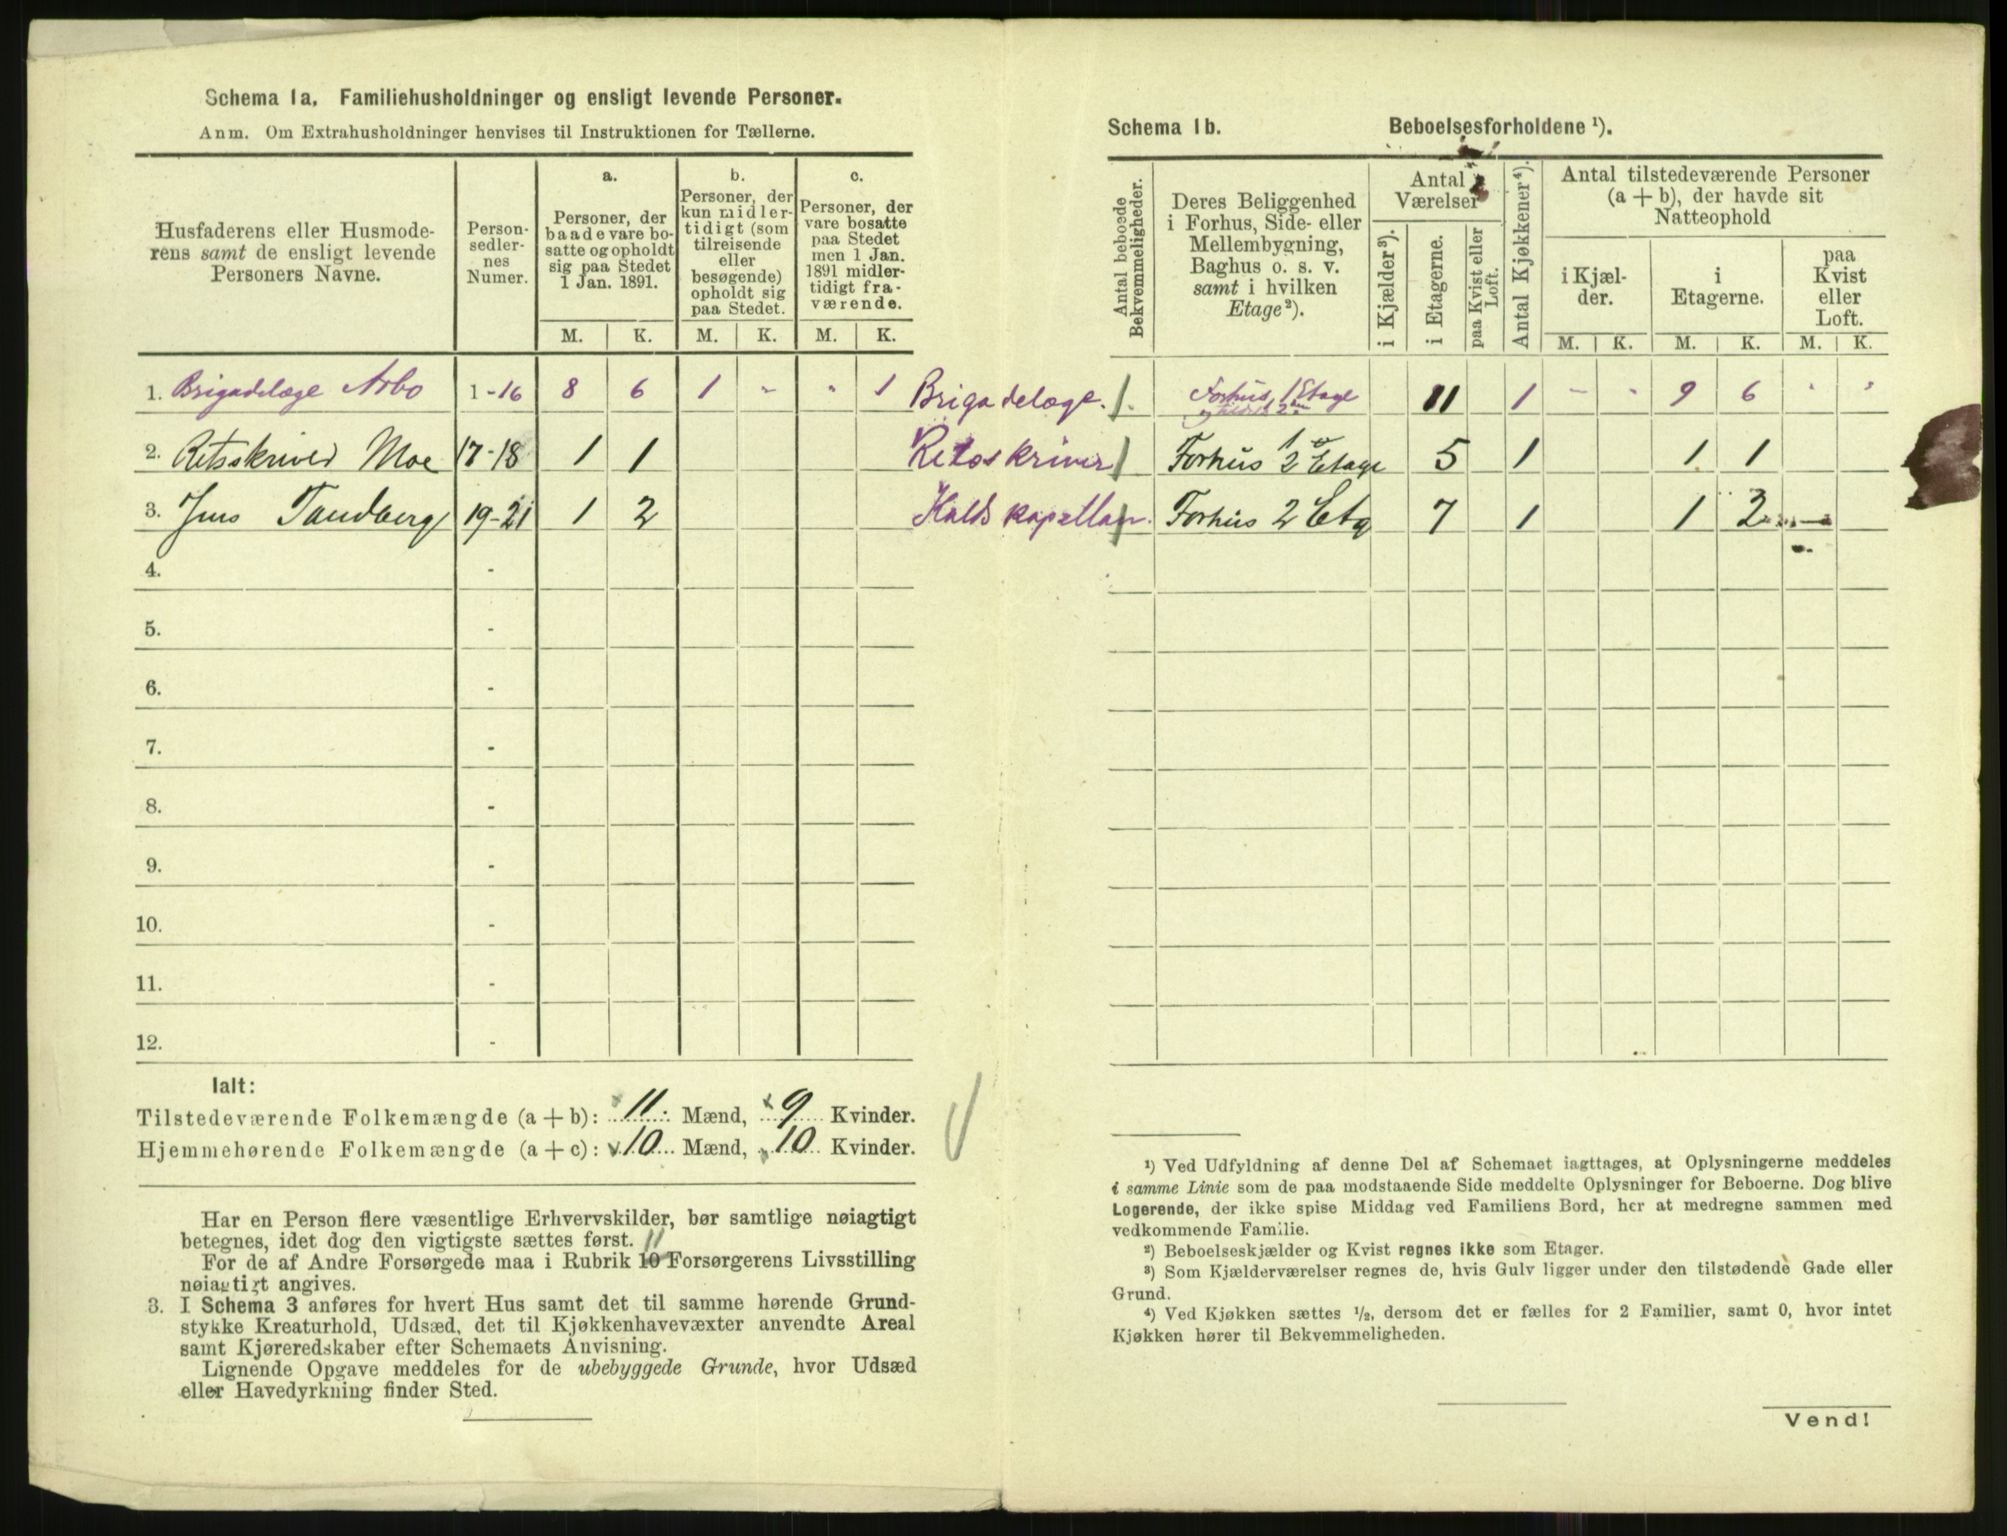 Schema 1a. Familiehusholdninger og ensligt levende Personer.
Anm. Om Extrahusholdninger henvises til Instruktionen for Tællerne.
Husfaderens eller Husmode-
rens samt de ensligt levende
Personers Navne.
Person-
sedler-
nes
Numer.
a.
Personer, der
baade vare bo-
satte og opholdt
sig paa Stedet
1 Jan. 1891.
b.
Personer, der
kun midler-
tidigt (som
tilreisende
eller
besøgende)
opholdt sig
paa Stedet.
c.
Personer, der
vare bosatte
paa Stedet
men 1 Jan.
1891 midler-
tidigt fra-
værende.
M. K. M. K. M. K.
1. Brigadelæge Arbo 1-16 8 6 1 - " 1
2. Retsskriver Moe 17-18 1 1
3. Jens Tandberg 19-21 1 2
4. -
5. -
6. -
7. -
8. -
9. -
10. -
11. -
12. -
Ialt:
Tilstedeværende Folkemængde (a + b): 11 Mænd, 9 Kvinder.
Hjemmehørende Folkemængde (a + c): 10 Mænd, 10 Kvinder.
Har en Person flere væsentlige Erhvervskilder, bør samtlige nøiagtigt
betegnes, idet dog den vigtigste sættes først. 11
For de af Andre Forsørgede maa i Rubrik 10 Forsørgerens Livsstilling
nøiagtigt angives.
3. I Schema 3 anføres for hvert Hus samt det til samme hørende Grund-
stykke Kreaturhold, Udsæd, det til Kjøkkenhavevæxter anvendte Areal
samt Kjøreredskaber efter Schemaets Anvisning.
Lignende Opgave meddeles for de ubebyggede Grunde, hvor Udsæd
eller Havedyrkning finder Sted.
Schema 1b. Beboelsesforholdene ¹).
Antal beboede
Bekvemmeligheder.
Deres Beliggenhed
i Forhus, Side- eller
Mellembygning,
Baghus o. s. v.
samt i hvilken
Etage²).
Antal
Værelser
i Kjælder³).
i Etagerne.
paa Kvist eller
Loft.
Antal Kjøkkener⁴).
Antal tilstedeværende Personer
(a + b), der havde sit
Natteophold
i Kjæl-
der.
i
Etagerne.
paa
Kvist
eller
Loft.
M. K. M. K. M. K.
Brigadelæge. 1. Forhus, 1 Etage 11 1 - " 9 6 " "
Retsskriver 1 Forhus 2 Etage 5 1 1 1
Kapellan 1 Forhus 2 Etg 7 1 1 2
¹) Ved Udfyldning af denne Del af Schemaet iagttages, at Oplysningerne meddeles
i samme Linie som de paa modstaaende Side meddelte Oplysninger for Beboerne. Dog blive
Logerende, der ikke spise Middag ved Familiens Bord, her at medregne sammen med
vedkommende Familie.
²) Beboelseskjælder og Kvist regnes ikke som Etager.
³) Som Kjælderværelser regnes de, hvis Gulv ligger under den tilstødende Gade eller
Grund.
⁴) Ved Kjøkken sættes ½, dersom det er fælles for 2 Familier, samt 0, hvor intet
Kjøkken hører til Bekvemmeligheden.
Vend!